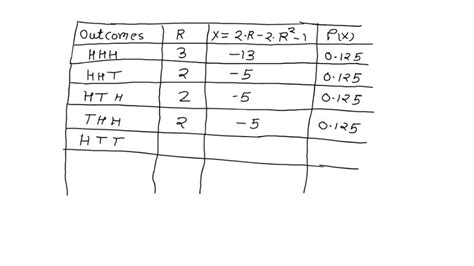 Outcomes R X = 2·R-2·R²-1 P(X)
HHH 3 -13 0.125
HHT 2 -5 0.125
HTH 2 -5 0.125
THH 2 -5 0.125
HTT